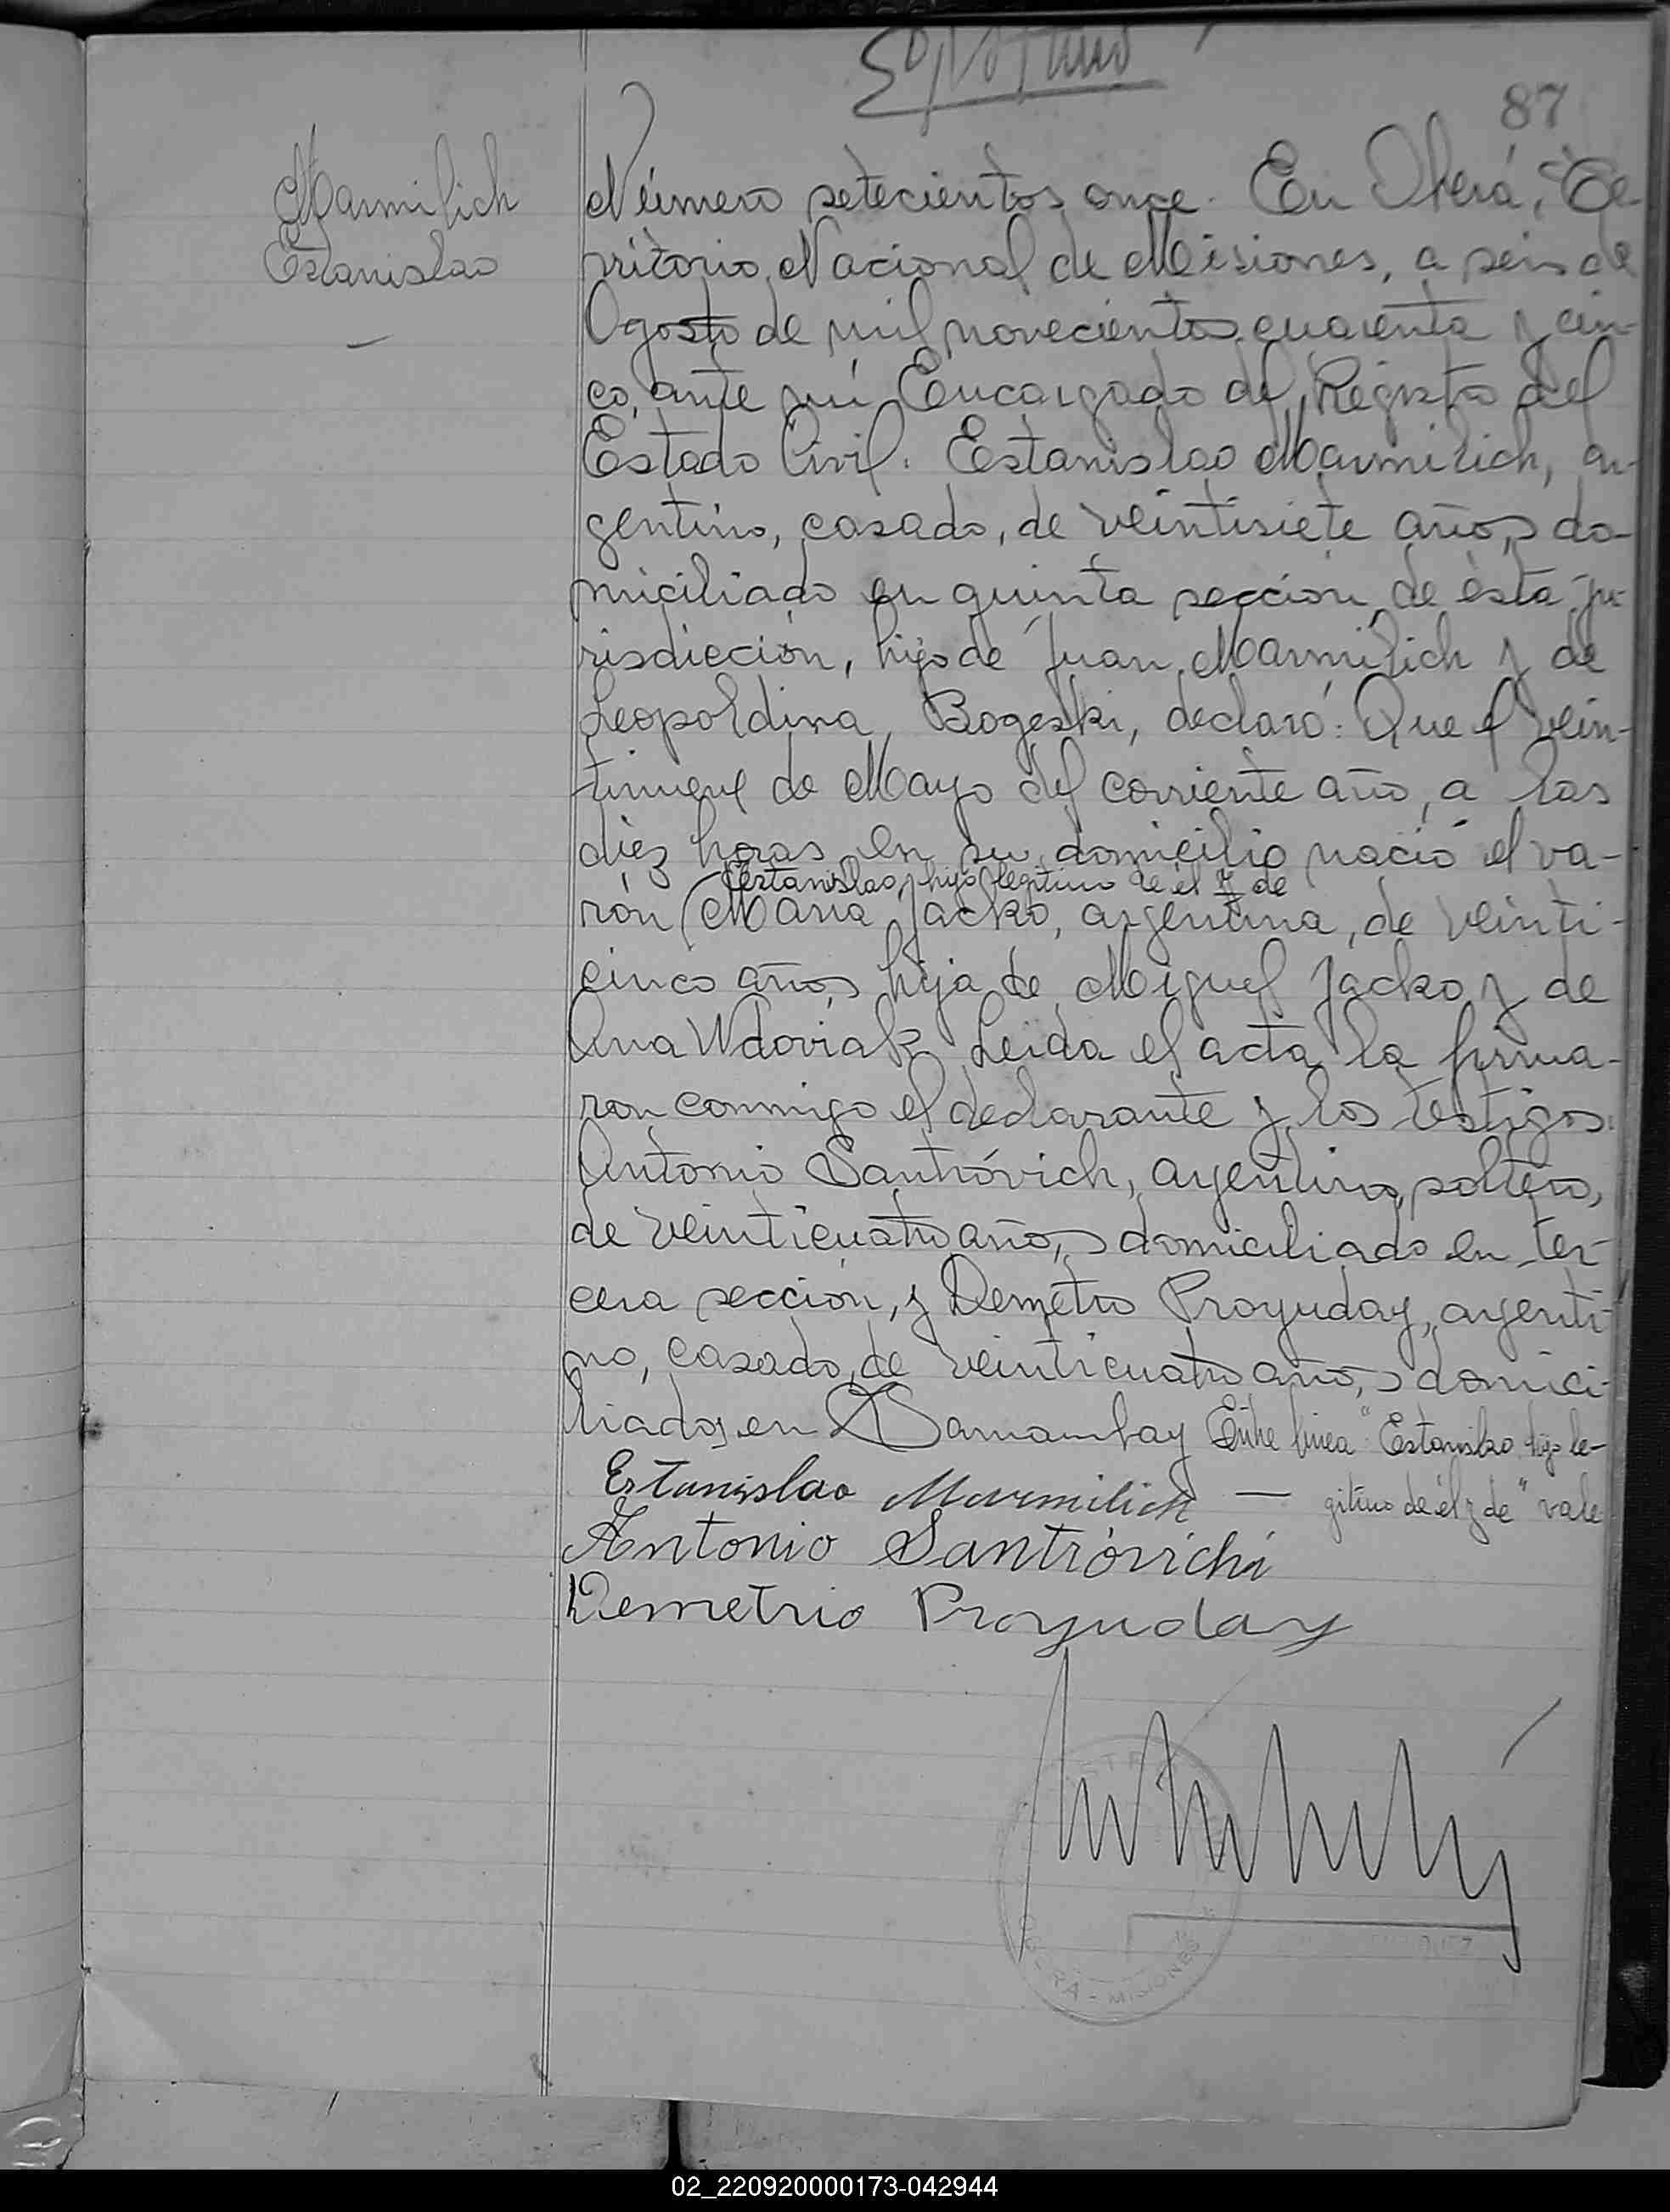 87
Marmilich
Estanislao
Número setecientos once. En Oberá, Te-
rritorio Nacional de Misiones, a seis de
Agosto de mil novecientos cuarenta y cin-
co, ante mi Encargado del Registro del
Estado Civil: Estanislao Marmilich, ar-
gentino, casado, de veintisiete años, do-
miciliado en quinta sección de ésta ju-
risdicción, hijo de Juan Marmilich y de
Leopoldina Bogeski, declaró: Que el vein-
tinueve de Mayo del corriente año, a las
diez horas en su domicilio nació el va-
Estanislao, hijo legitimo de él y de
rón (Maria Jacko, argentina, de veinti-
cinco años, hija de Miguel Jacko y de
Ana Wdoviak. Leida el acta la firma-
ron conmigo el declarante y los testigos:
Antonio Santróvich, argentino, soltero,
de veinticuatro años, domiciliado en ter-
cera sección, y Demetrio Proyuday, argenti-
no, casado, de veinticuatro años, domici-
liados en Samambay Entre linea "Estanislao hijo le-
Estanislao Marmilich — gitimo de él y de" vale
Antonio Santróvichi
Demetrio Proyuday
OBERÁ - MISIONES
02_220920000173-042944